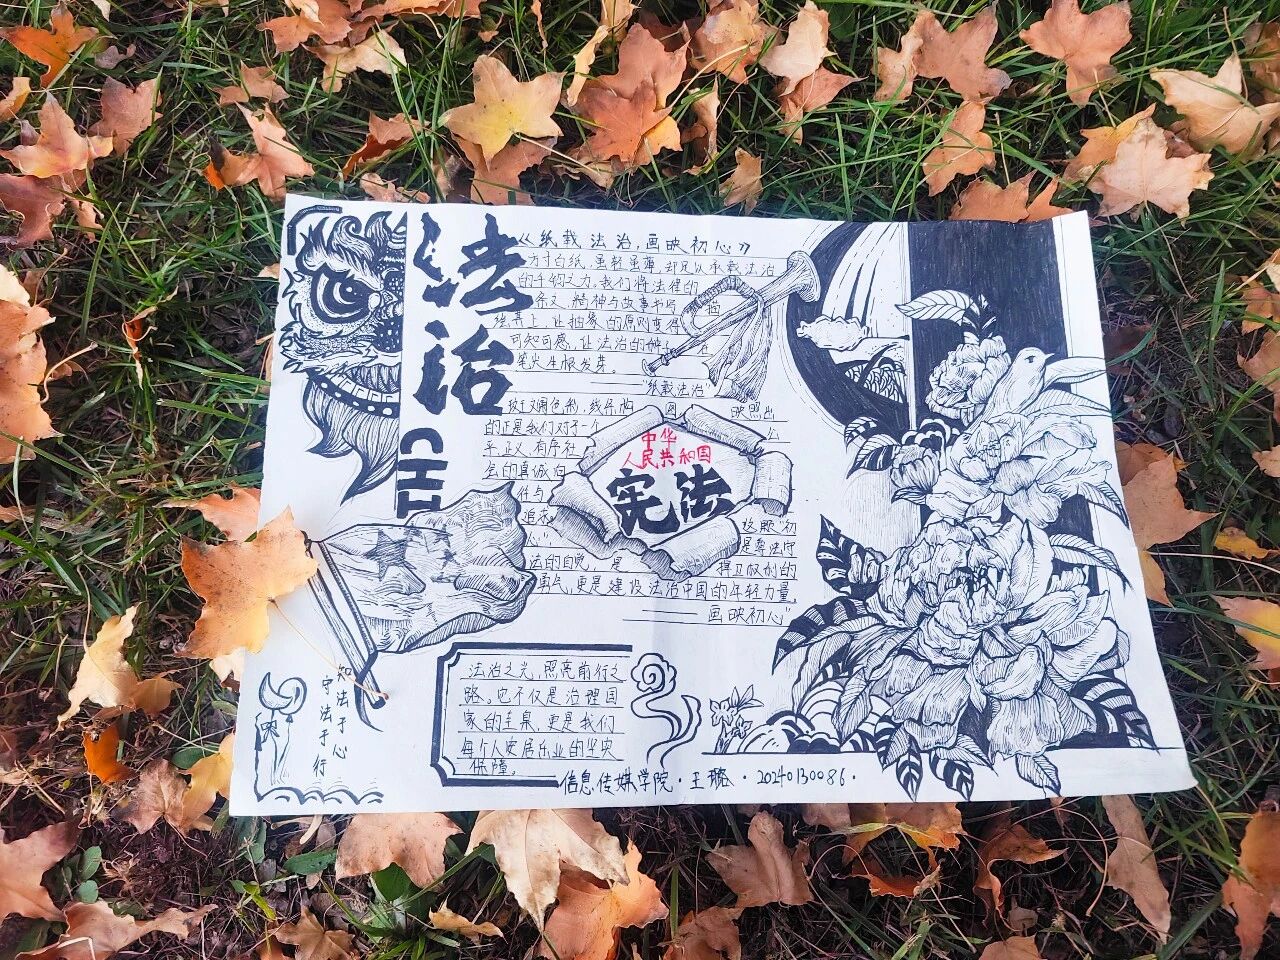 法治
CHI
《纸载法治,画映初心》
方寸白纸,虽轻虽薄,却足以承载法治
的千钧之力。我们将法律的
条文、精神与故事书写、描
绘其上,让抽象的原则变得
可知可感,让法治的种
笔尖生根发芽。
——"纸载法治"
斑斓色彩,线条构图 映照出
的正是我们对于一个 公
平正义、有序社
会的真诚向
往与
追求。 这颗"初
心" 是尊法守
法的自觉,是 捍卫权利的
勇气,更是建设法治中国的年轻力量。
——画映初心"
中华
人民共和国
宪法
法治之光,照亮前行之
路。它不仅是治理国
家的重器,更是我们
每个人安居乐业的坚实
保障。
知法于心
守法于行
信息传媒学院·王璐·20240130086·